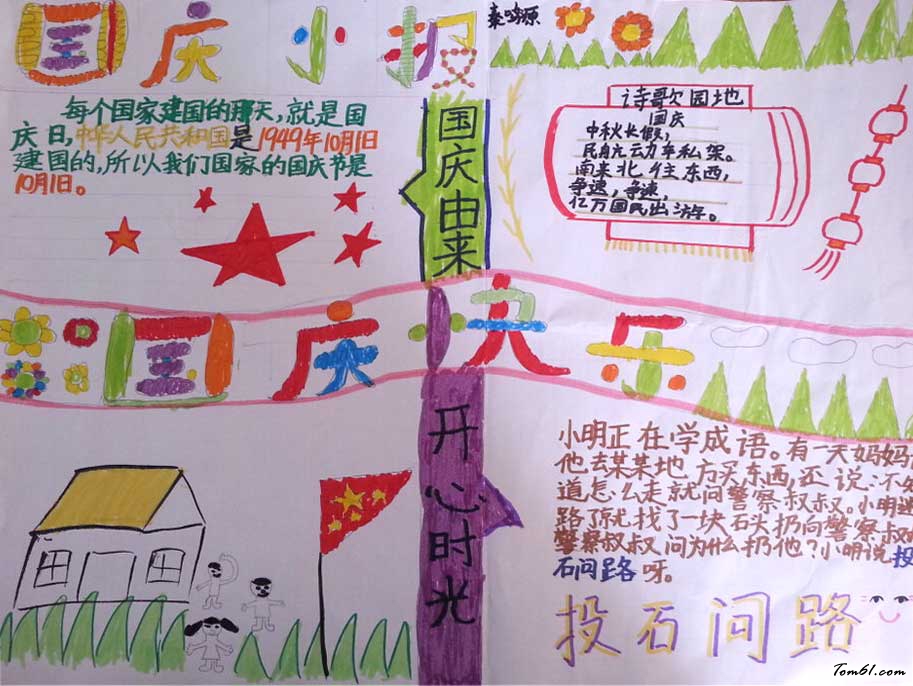 国庆小报
秦
每个国家建国的那天，就是国
庆日，中华人民共和国是1949年10月1日
建国的，所以我们国家的国庆节是
10月1日。
国庆由来
诗歌园地
国庆
中秋长假，
民自亢云力车私架。
南来北往东西，
争速，争速，
亿万国民出游。
国庆快乐
开心时光
小明正在学成语。有一天妈妈
他去某某地方买东西，还说：不
道怎么走就问警察叔叔。小明迷
路了就找了一块石头扔向警察叔
警察叔叔问为什么扔他？小明说投
石问路呀。
投石问路
Tom61.com